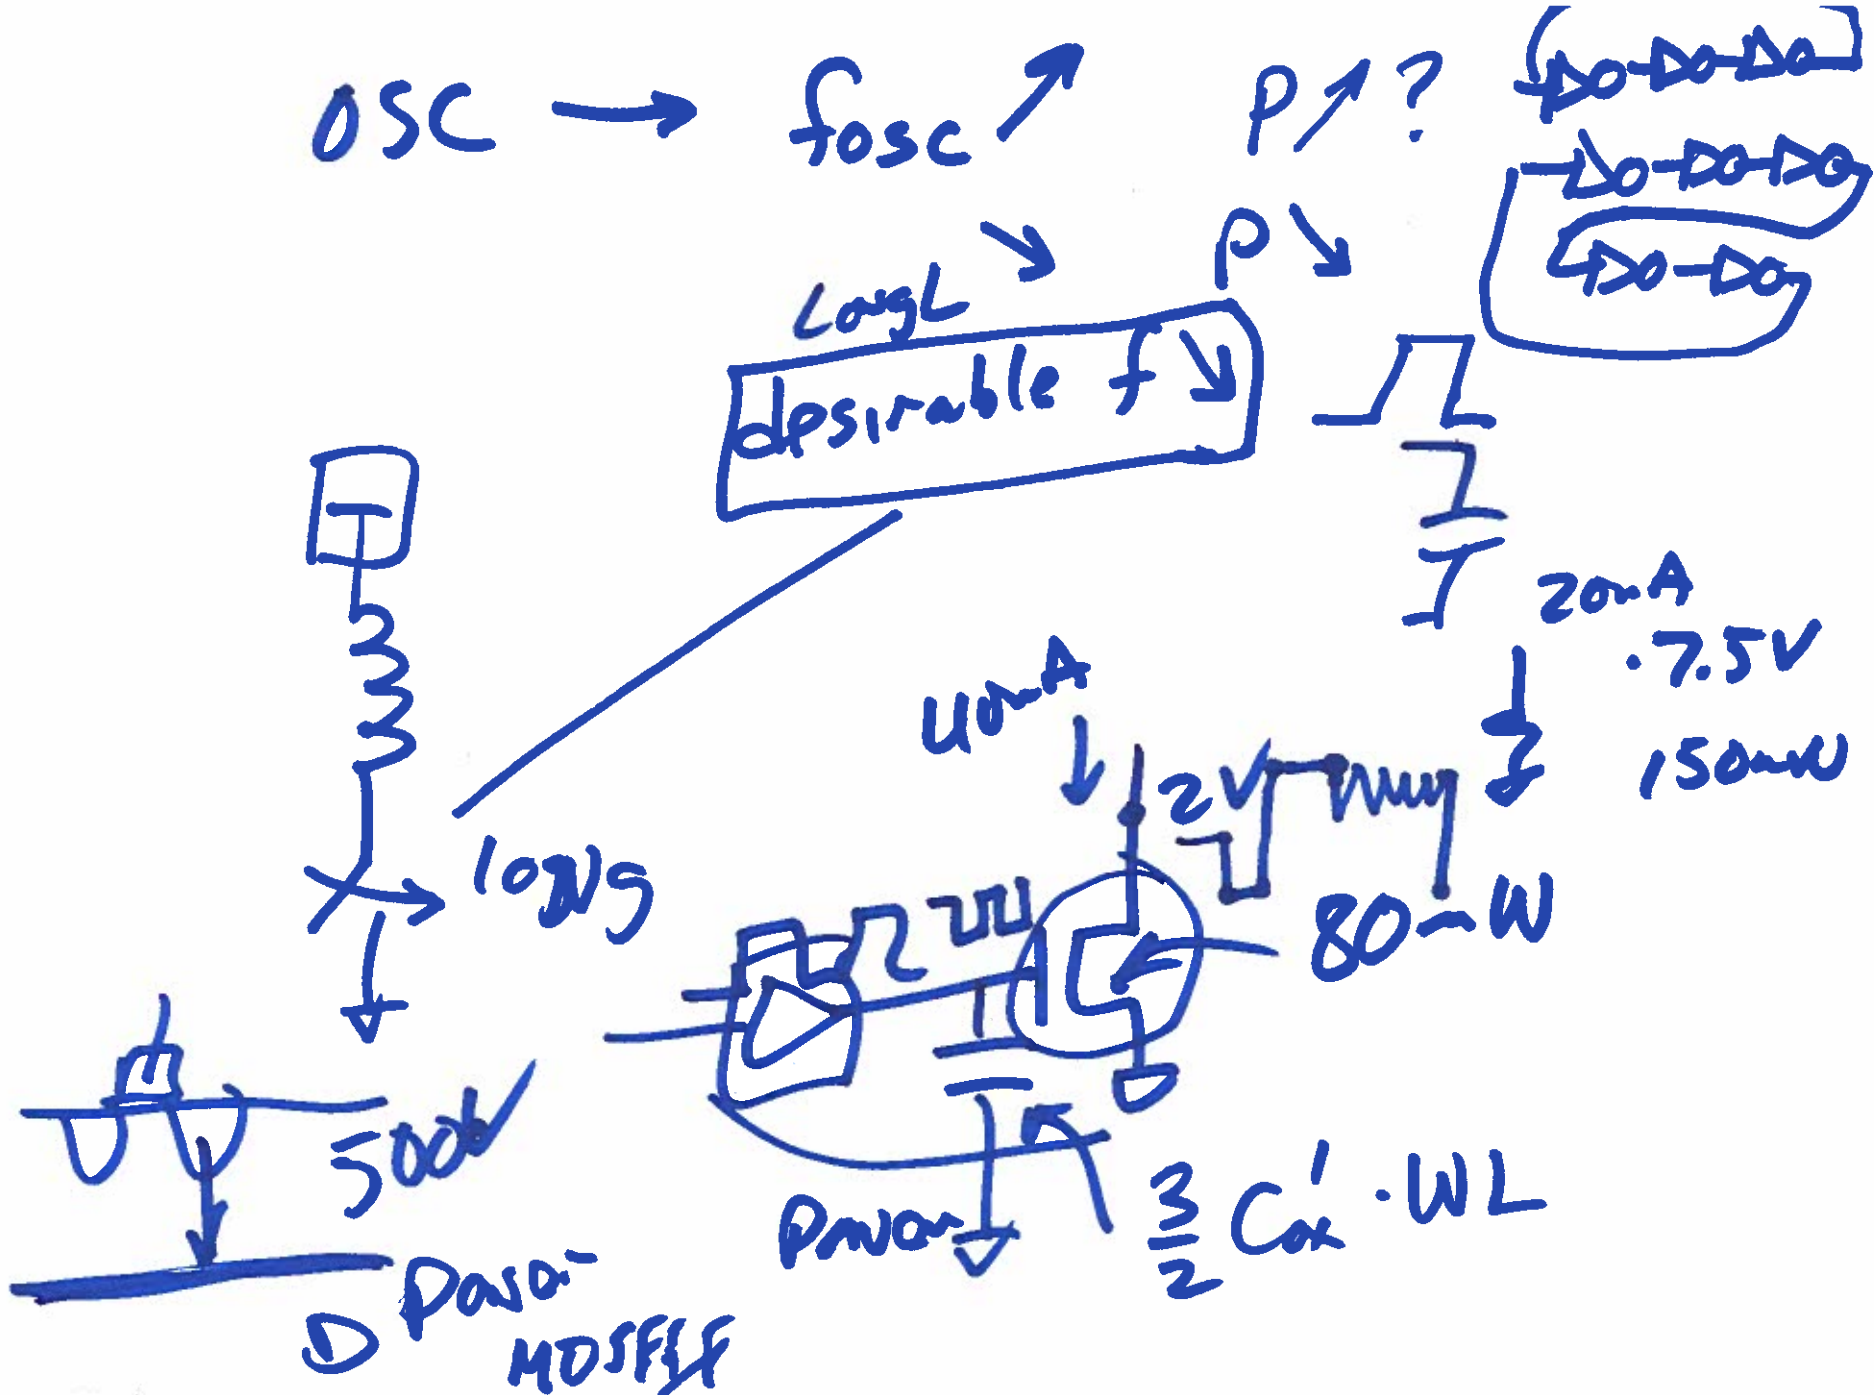 OSC → fosc ↗ P ↗ ?
P ↘
Long L ↘
desirable f ↘
20mA
.7.5V
150mW
40mA
2V
80mW
500V
3/2 Cox' · WL
D
Power